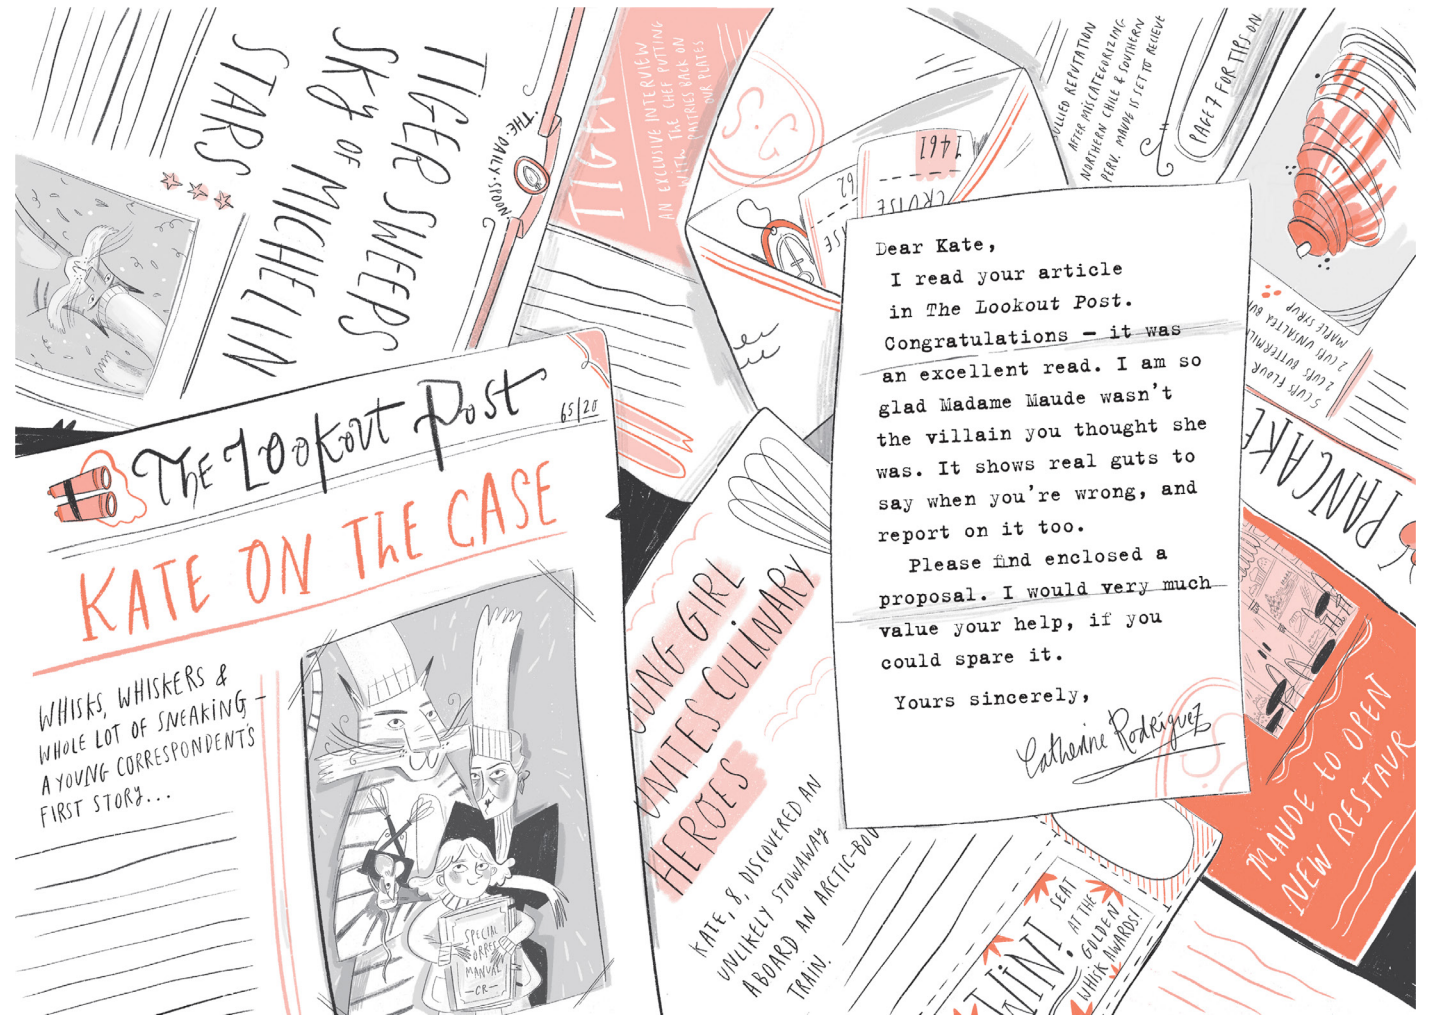 TIGER SWEEPS
SKY OF MICHELIN
STARS
·THE·DAILY·NOOSH·
TIGER
AN EXCLUSIVE INTERVIEW
WITH THE CHEF PUTTING
PASTRIES BACK ON
OUR PLATES
S.G
7461
CRUISE
REPUTATION
AFTER MISCATEGORIZING
NORTHERN CHILE & SOUTHERN
PERU. MAUDE IS SET TO RECIEVE
PAGE 7 FOR TIPS ON
5 CUPS FLOUR
2 CUPS BUTTERMIL
2 CUPS UNSALTED BU
MAPLE SYRUP
PANCAKE
The Lookout Post
65/20
KATE ON THE CASE
WHISKS, WHISKERS &
WHOLE LOT OF SNEAKING –
A YOUNG CORRESPONDENT'S
FIRST STORY...
SPECIAL
CORRES
MANUAL
–CR–
OUNG GIRL
UNITES CULINARY
HEROES
KATE, 8, DISCOVERED AN
UNLIKELY STOWAWAY
ABOARD AN ARCTIC-BOU
TRAIN.
Dear Kate,
I read your article
in The Lookout Post.
Congratulations – it was
an excellent read. I am so
glad Madame Maude wasn't
the villain you thought she
was. It shows real guts to
say when you're wrong, and
report on it too.
Please find enclosed a
proposal. I would very much
value your help, if you
could spare it.
Yours sincerely,
Catherine Rodríguez
MAUDE TO OPEN
NEW RESTAUR
WIN!
SEAT
AT THE
GOLDEN
WHISK AWARDS!